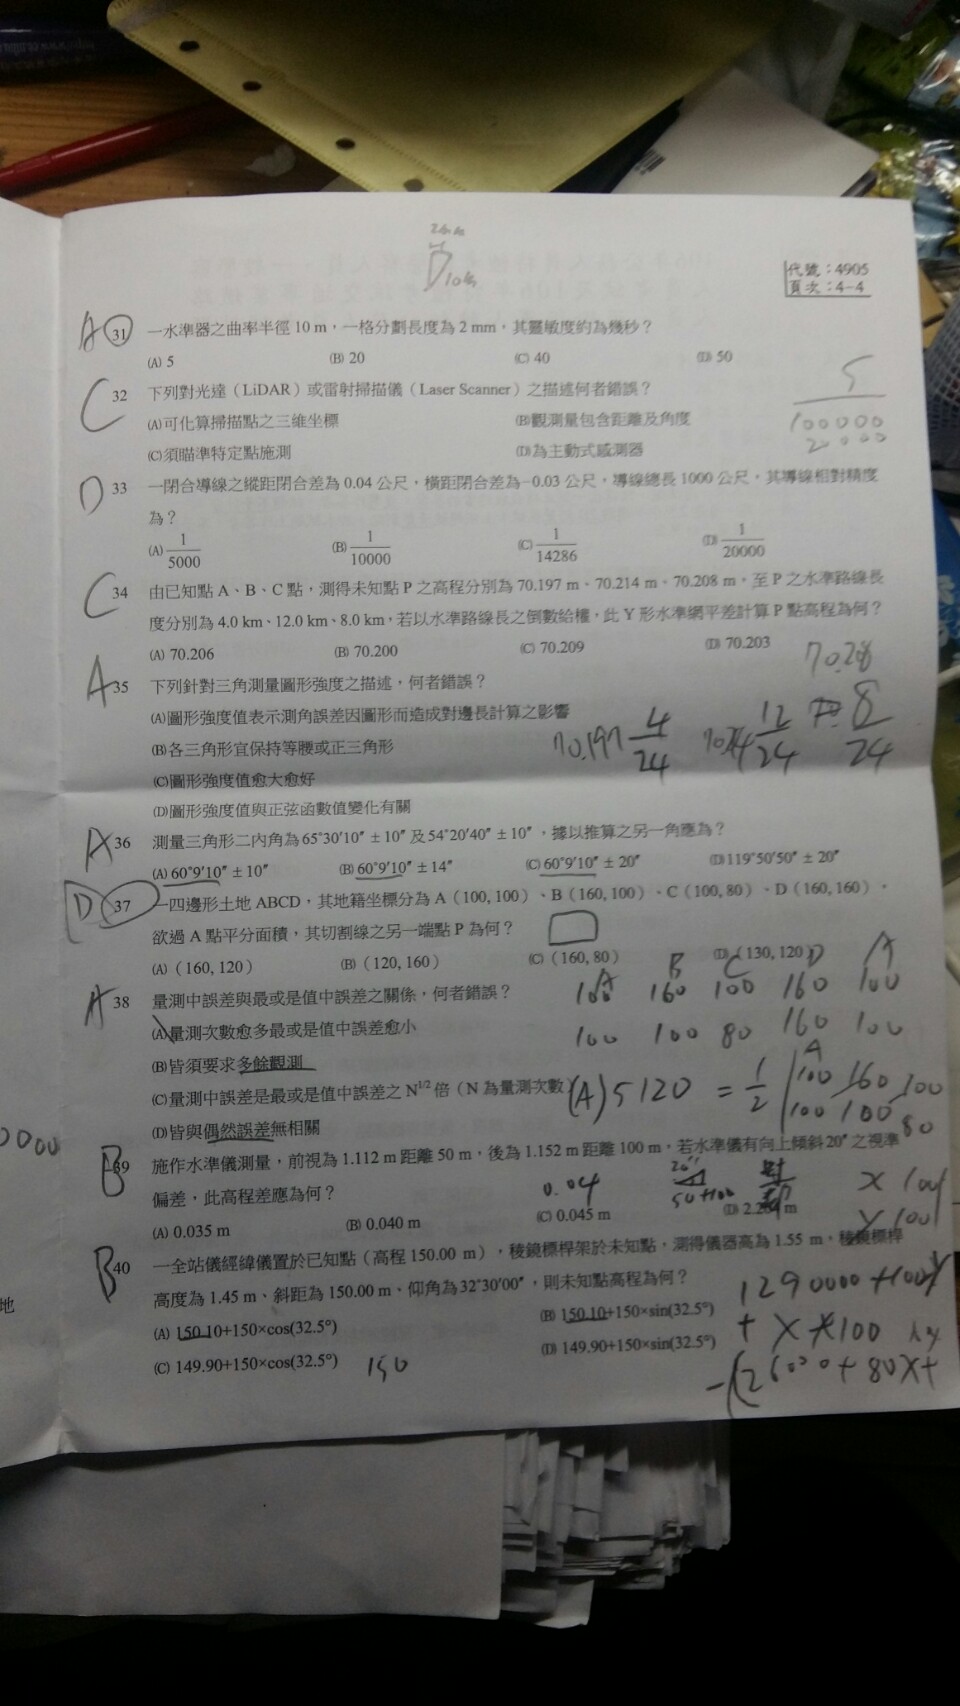 2mm
10m
代號：4905
頁次：4-4
A 31 一水準器之曲率半徑 10 m，一格分劃長度為 2 mm，其靈敏度約為幾秒？
(A) 5 (B) 20 (C) 40 (D) 50
C 32 下列對光達（LiDAR）或雷射掃描儀（Laser Scanner）之描述何者錯誤？
5
(A)可化算掃描點之三維坐標 (B)觀測量包含距離及角度
100000
(C)須瞄準特定點施測 (D)為主動式感測器
20000
D 33 一閉合導線之縱距閉合差為 0.04 公尺，橫距閉合差為−0.03 公尺，導線總長 1000 公尺，其導線相對精度
為？
(A) 1/5000 (B) 1/10000 (C) 1/14286 (D) 1/20000
C 34 由已知點 A、B、C 點，測得未知點 P 之高程分別為 70.197 m、70.214 m、70.208 m，至 P 之水準路線長
度分別為 4.0 km、12.0 km、8.0 km，若以水準路線長之倒數給權，此 Y 形水準網平差計算 P 點高程為何？
(A) 70.206 (B) 70.200 (C) 70.209 (D) 70.203
70.28
A 35 下列針對三角測量圖形強度之描述，何者錯誤？
(A)圖形強度值表示測角誤差因圖形而造成對邊長計算之影響
70.197 4/24 12/24 8/24
(B)各三角形宜保持等腰或正三角形
(C)圖形強度值愈大愈好
(D)圖形強度值與正弦函數值變化有關
A 36 測量三角形二內角為 65°30′10″ ± 10″ 及 54°20′40″ ± 10″，據以推算之另一角應為？
(A) 60°9′10″ ± 10″ (B) 60°9′10″ ± 14″ (C) 60°9′10″ ± 20″ (D)119°50′50″ ± 20″
D 37 一四邊形土地 ABCD，其地籍坐標分為 A（100, 100）、B（160, 100）、C（100, 80）、D（160, 160），
欲過 A 點平分面積，其切割線之另一端點 P 為何？
(A)（160, 120） (B)（120, 160） (C)（160, 80） (D)（130, 120）
A B C D A
A 38 量測中誤差與最或是值中誤差之關係，何者錯誤？
100 160 100 160 100
(A)量測次數愈多最或是值中誤差愈小
100 100 80 160 100
(B)皆須要求多餘觀測
(C)量測中誤差是最或是值中誤差之 N1/2 倍（N 為量測次數）
(A) 5120 = 1/2
A
100 160 100
100 100 80
(D)皆與偶然誤差無相關
B 39 施作水準儀測量，前視為 1.112 m 距離 50 m，後為 1.152 m 距離 100 m，若水準儀有向上傾斜 20″ 之視準
偏差，此高程差應為何？
0.04 20" 50+100 X 100
Y 100
(A) 0.035 m (B) 0.040 m (C) 0.045 m
B 40 一全站儀經緯儀置於已知點（高程 150.00 m），稜鏡標桿架於未知點，測得儀器高為 1.55 m，稜鏡標桿
高度為 1.45 m、斜距為 150.00 m、仰角為 32°30′00″，則未知點高程為何？
(A) 150.10+150×cos(32.5°) (B) 150.10+150×sin(32.5°)
(C) 149.90+150×cos(32.5°) (D) 149.90+150×sin(32.5°)
150
1290000+100Y
+ X 100
-(26000+80X+
0000
地